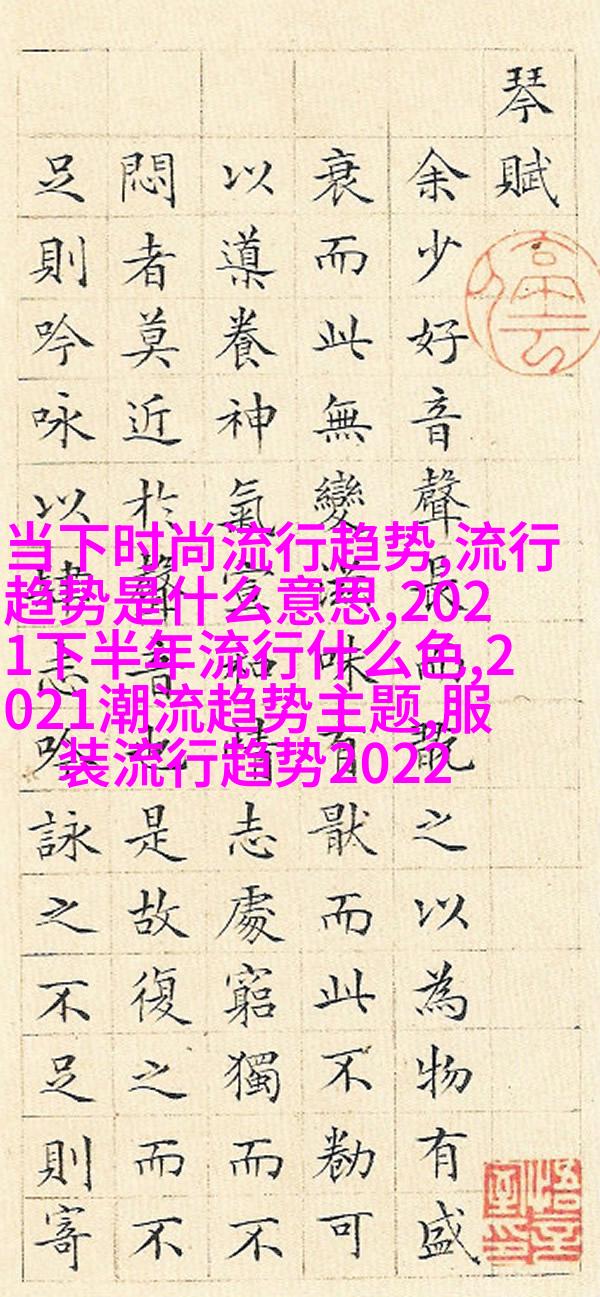 琴賦
余少好音聲長而翫之以為物有盛
衰而此無變滋味有猒而此不勌可
以導養神氣宣和情志處窮獨而不
悶者莫近於聲音也是故復之而不
足則吟咏以肆志吟詠之不足則寄
当下时尚流行趋势,流行
趋势是什么意思,202
1下半年流行什么色,2
021潮流趋势主题,服
装流行趋势2022